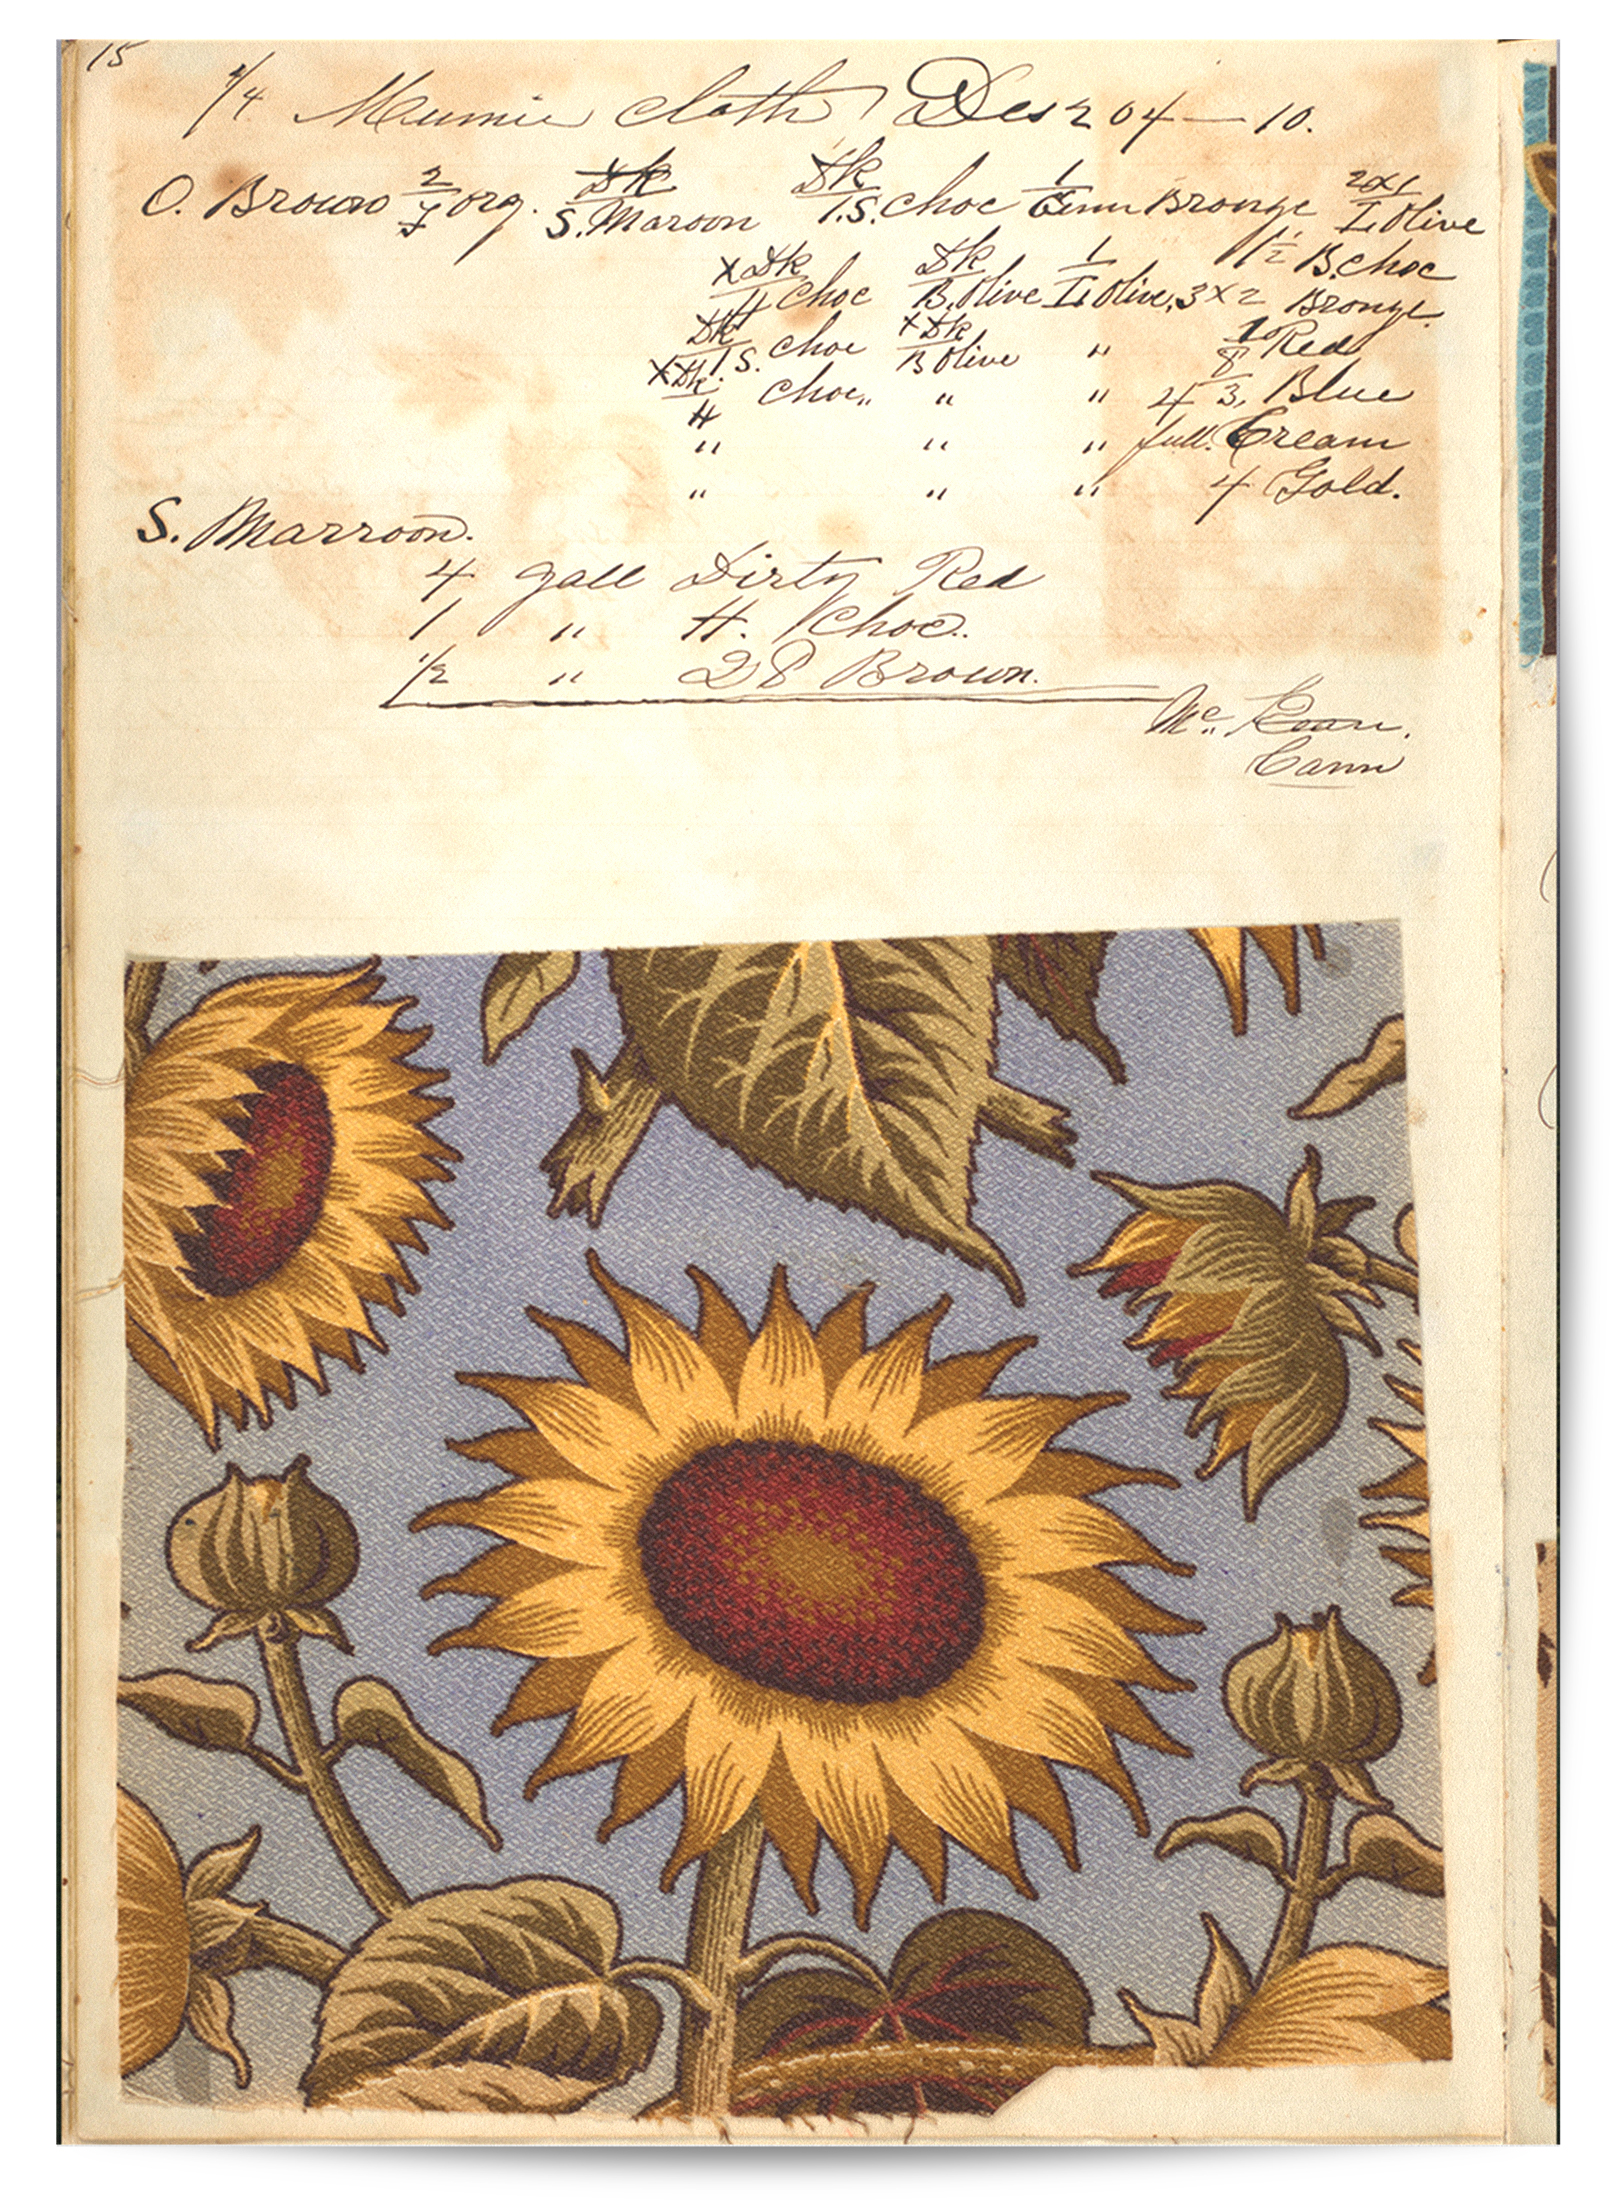 15
4/4 Mumie cloth Des 204 — 10.
O. Brown 2/7 org. Dk/S. Maroon Dk/1.S. choc 1/ Bronze 2x1/L Olive
x Dk/H choc Dk/B. Olive 1/L Olive, 1½ B. choc
3 x 2 Bronze.
Dk/1.S. choc x Dk/B Olive " Red
x Dk/H choc " " " 4 3, Blue
" " " full. Cream
" " " 4 Gold.
S. Marroon.
4 gall Dirty Red
1 " H. Choc.
1/2 " 28 Brown.
Mc. Kean.
Cann